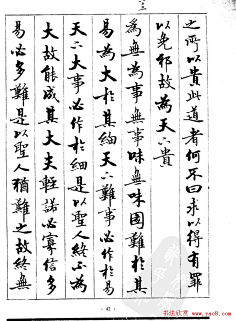 之所以貴此道者何不曰求以得有罪
以免邪故為天下貴
三
為無為事無事味無味圖難於其
易為大於其細天下難事必作於易
天下大事必作於細是以聖人終不為
大故能成其大夫輕諾必寡信多
易必多難是以聖人猶難之故終無
- 42 -